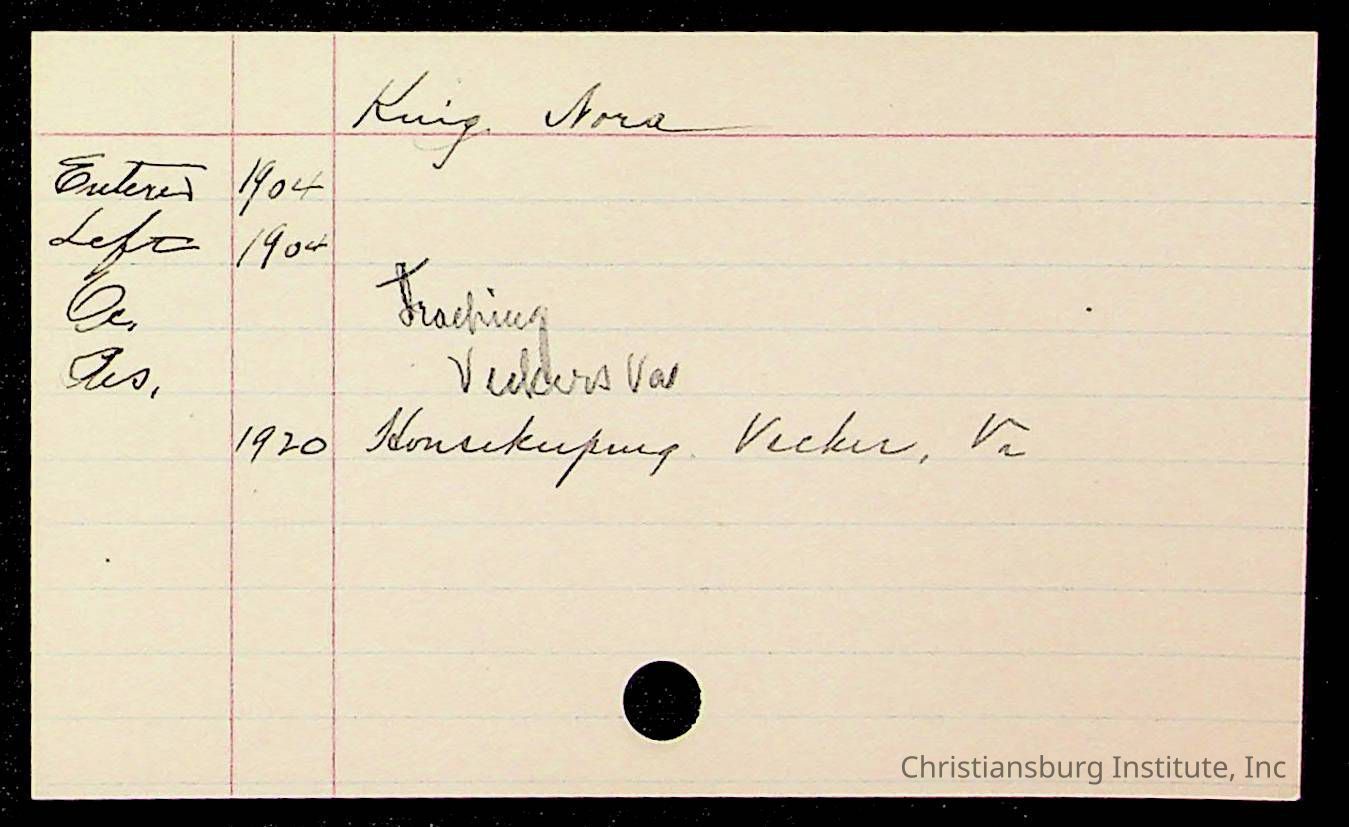 King, Nora
Entered 1904
Left 1904
Oc. Teaching
Res. Vickers Va
1920 Housekeeping. Vicker, Va
Christiansburg Institute, Inc